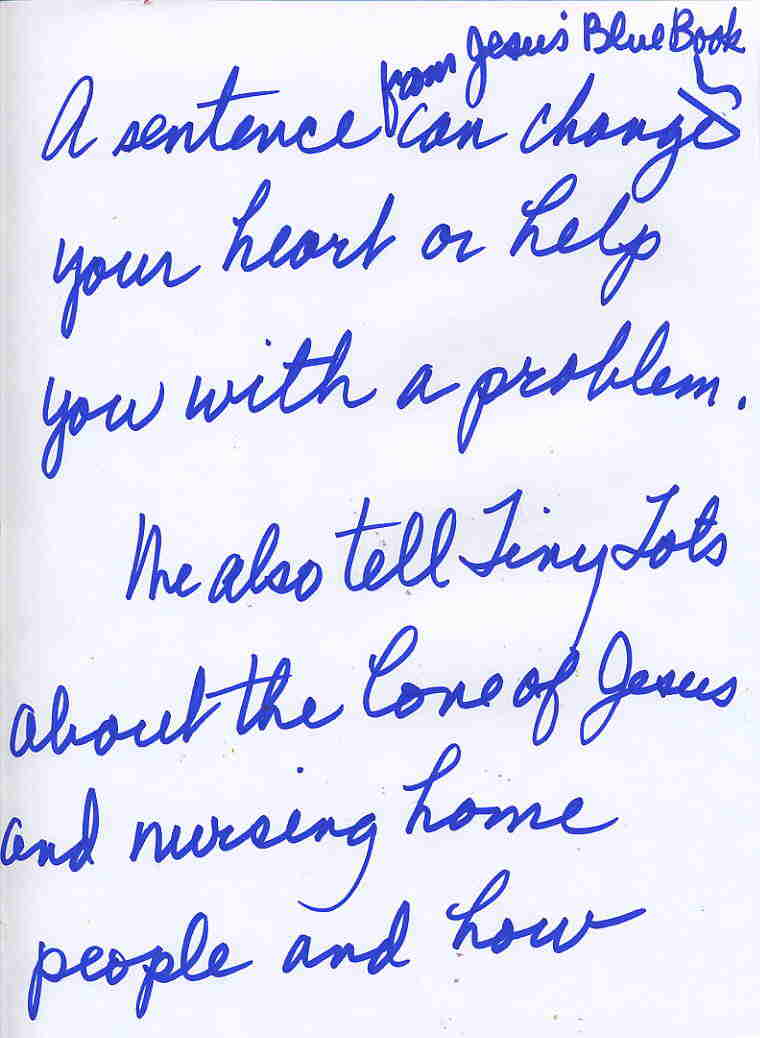 from Jesus' Blue Book
A sentence can change
your heart or help
you with a problem.
We also tell Tiny Tots
about the Love of Jesus
and nursing home
people and how